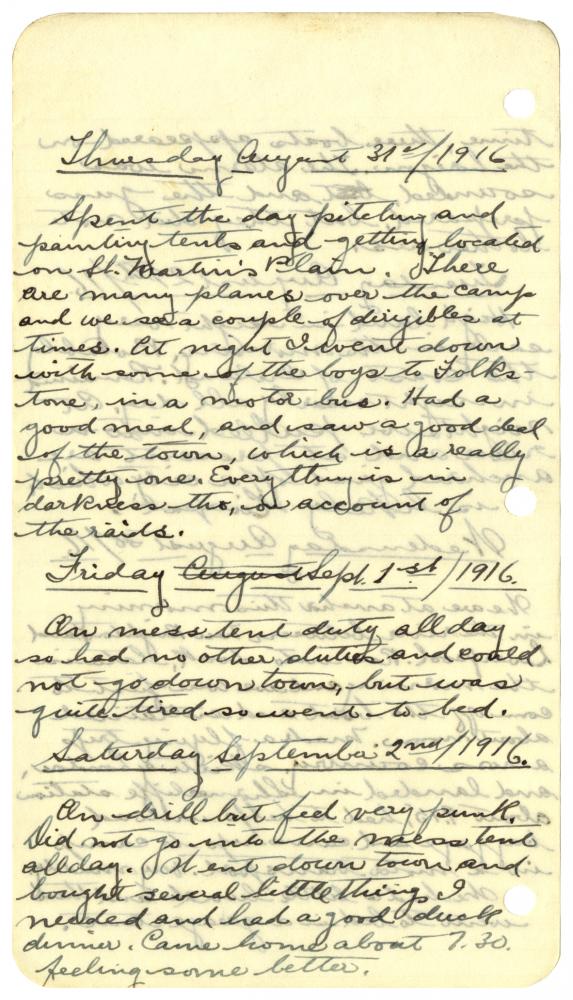 Thursday August 31st/1916
Spent the day pitching and
painting tents and getting located
on St. Martin's Plain. There
are many planes over the camp
and we see a couple of dirigibles at
times. At night I went down
with some of the boys to Folks-
tone, in a motor bus. Had a
good meal, and saw a good deal
of the town, which is a really
pretty one. Everything is in
darkness tho, on account of
the raids.
Friday August Sept. 1st/1916.
On mess tent duty all day
so had no other duties and could
not go down town, but was
quite tired so went to bed.
Saturday September 2nd/1916.
On drill but feel very punk.
Did not go into the mess tent
all day. Went down town and
bought several little things I
needed and had a good duck
dinner. Came home about 7.30.
feeling some better.